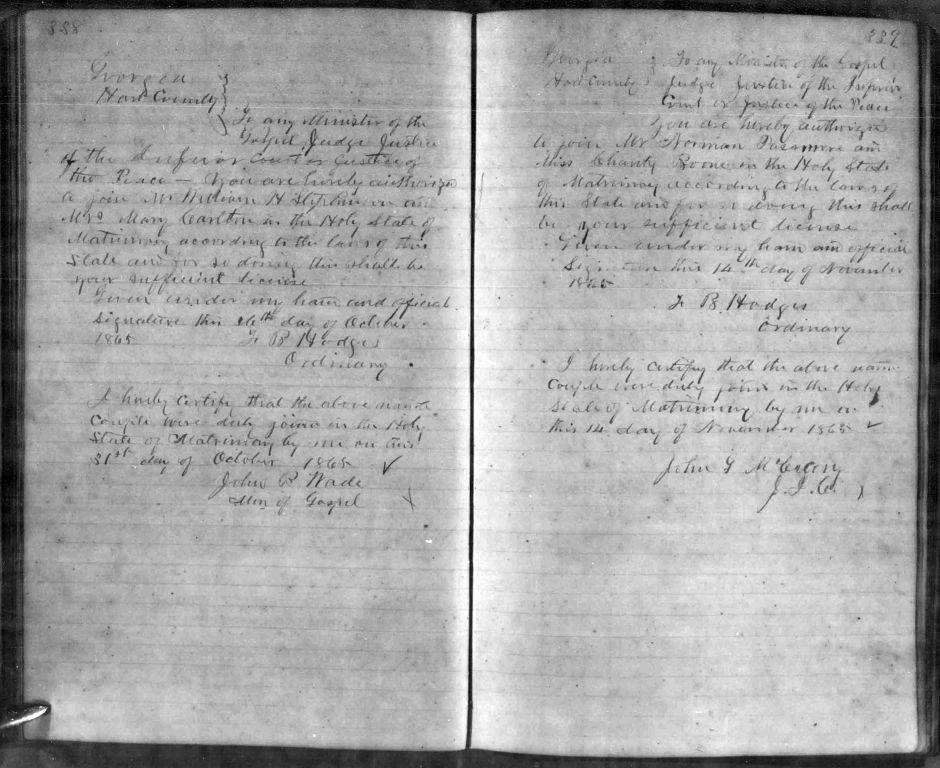 338
Georgia
Hart County
To any Minister of the
Gospel, Judge Justice
of the Inferior Court or Justice of
the Peace — You are hereby authorized
to join Mr William H and
Mrs Mary Carlton in the Holy State of
Matrimony according to the laws of this
State and for so doing this shall be
your sufficient license
Given under my hand and official
Signature this 26th day of October
1865 F B Hodges
Ordinary
I hereby certify that the above named
Couple were duly joined in the Holy
State of Matrimony by me on this
31st day of October 1865
John B Wade
Min of Gospel
339
Georgia
Hart County
To any Minister of the Gospel
Judge Justice of the Inferior
Court or Justice of the Peace
You are hereby authorize
to join Mr Norman Passmore and
Miss Charity Boone in the Holy State
of Matrimony according to the laws of
this State and for so doing this shall
be your sufficient license
Given under my han and official
Signature this 14th day of November
1865
F B. Hodges
Ordinary
I hereby certify that the above name
Couple were duly joined in the Holy
State of Matrimony by me on
this 14 day of November 1865
John G McCrary
J. I. C.